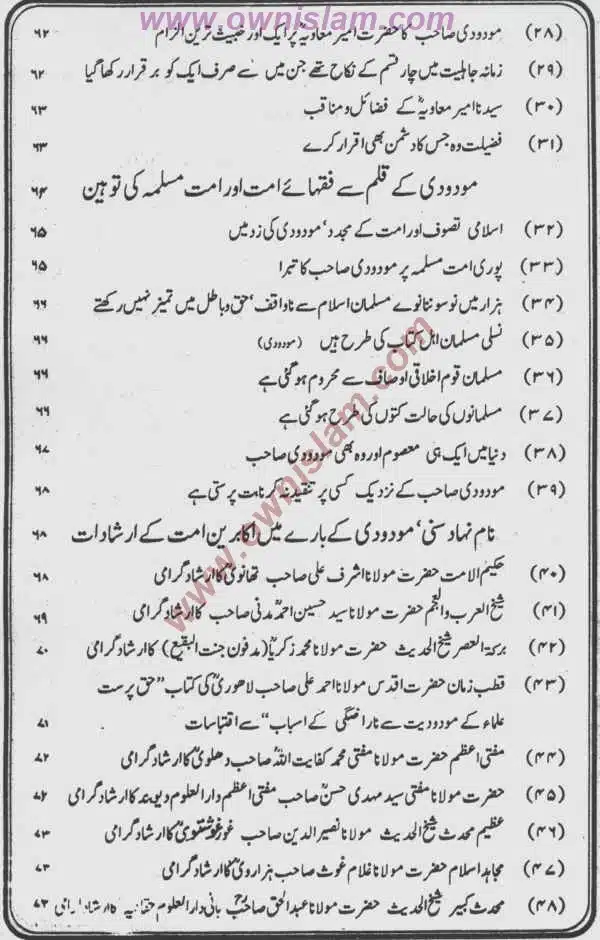 www.ownislam.com
(۲۸) مودودی صاحب کا حضرت امیر معاویہؓ پر ایک اور خبیث ترین الزام ۶۲
(۲۹) زمانہ جاہلیت میں چار قسم کے نکاح تھے جن میں سے صرف ایک کو برقرار رکھا گیا ۶۲
(۳۰) سیدنا امیر معاویہؓ کے فضائل و مناقب ۶۳
(۳۱) فضیلت وہ جس کا دشمن بھی اقرار کرے ۶۳
مودودی کے قلم سے فقہائے امت اور امت مسلمہ کی توہین ۶۴
(۳۲) اسلامی تصوف اور امت کے مجدد، مودودی کی زد میں ۶۵
(۳۳) پوری امت مسلمہ پر مودودی صاحب کا تبرا ۶۵
(۳۴) ہزار میں نو سو ننانوے مسلمان اسلام سے ناواقف، حق و باطل میں تمیز نہیں رکھتے ۶۶
(۳۵) نسلی مسلمان اہل کتاب کی طرح ہیں (مودودی) ۶۶
(۳۶) مسلمان قوم اخلاقی اوصاف سے محروم ہو گئی ہے ۶۶
(۳۷) مسلمانوں کی حالت کتوں کی طرح ہو گئی ہے ۶۶
(۳۸) دنیا میں ایک ہی معصوم اور وہ بھی مودودی صاحب ۶۷
(۳۹) مودودی صاحب کے نزدیک کسی پر تنقید نہ کرنا بت پرستی ہے ۶۸
نام نہاد سنی، مودودی کے بارے میں اکابرین امت کے ارشادات ۶۸
(۴۰) حکیم الامت حضرت مولانا اشرف علی صاحب تھانویؒ کا ارشاد گرامی ۶۸
(۴۱) شیخ العرب والعجم حضرت مولانا سید حسین احمد مدنی صاحب کا ارشاد گرامی ۶۹
(۴۲) برکۃ العصر شیخ الحدیث حضرت مولانا محمد زکریاؒ (مدفون جنت البقیع) کا ارشاد گرامی ۷۰
(۴۳) قطب زمان حضرت اقدس مولانا احمد علی صاحب لاھوریؒ کی کتاب "حق پرست
علماء کے مودودیت سے ناراضگی کے اسباب" سے اقتباسات ۷۱
(۴۴) مفتی اعظم حضرت مولانا مفتی محمد کفایت اللہؒ صاحب دھلویؒ کا ارشاد گرامی ۷۲
(۴۵) حضرت مولانا مفتی سید مہدی حسنؒ صاحب مفتی اعظم دارالعلوم دیوبند کا ارشاد گرامی ۷۲
(۴۶) عظیم محدث شیخ الحدیث مولانا نصیر الدین صاحب غورغشتویؒ کا ارشاد گرامی ۷۳
(۴۷) مجاہد اسلام حضرت مولانا غلام غوث صاحب ہزارویؒ کا ارشاد گرامی ۷۳
(۴۸) محدث کبیر شیخ الحدیث حضرت مولانا عبدالحق صاحبؒ بانی دارالعلوم حقانیہ کا ارشاد گرامی ۷۳
www.ownislam.com